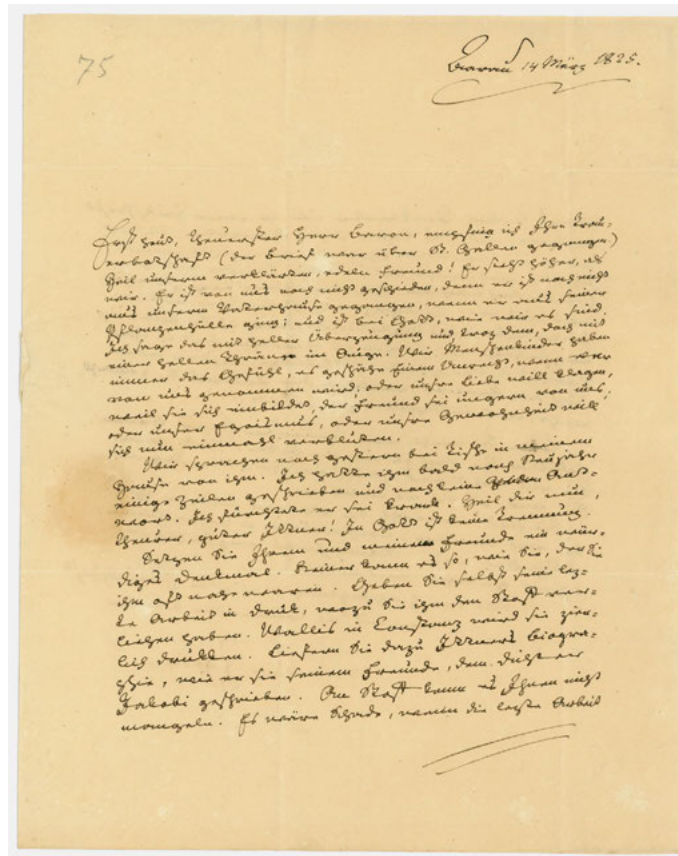 75
Aarau 14 März 1825.
Erst heut, theuerster Herr Baron, empfing ich Ihre Trau-
erbotschaft (der Brief war über St. Gallen gegangen.)
Heil unserm verklärten, edeln Freund! Er steht höher, als
wir. Er ist von uns noch nicht geschieden, denn er ist noch nicht
aus unserm Vaterhause gegangen, wenn er aus seiner
Pflanzenhülle ging; und ist bei Gott, wie wir es sind.
Ich sage das mit heller Überzeugung und troz dem, doch mit
einer hellen Thräne im Auge. Wir Menschenkinder haben
immer das Gefühl, es geschähe Unrecht, wenn wer
von uns genommen wird; oder unsre Liebe will klagen,
weil sie sich einbildet, der Freund sei ungern von uns;
oder unser Egoismus, oder unsre Gewohnheit will
sich nun einmahl verbluten.
Wir sprachen noch gestern bei Tische in meinem
Hause von ihm. Ich hatte ihm bald nach Neujahr
einige Zeilen geschrieben und noch keine Ant-
wort. Ich fürchtete er sei krank. Heil dir nun,
theurer, guter Ittner! In Gott ist keine Trennung.
Setzen Sie Ihrem und meinem Freunde ein wür-
diges Denkmal. Keiner kann es so, wie Sie, der Sie
ihm oft nahe waren. Geben Sie selbst seine lez-
te Arbeit in Druk, wozu Sie ihm den Stoff ver-
liehen haben. Wallis in Constanz wird sie zier-
lich drukken. Liefern Sie dazu Ittners Biogra-
phie, wie er sie seinem Freunde, dem Dichter
Jakobi geschrieben. An Stoff kann es Ihnen nicht
mangeln. Es wäre Schade, wenn die lezte Arbeit